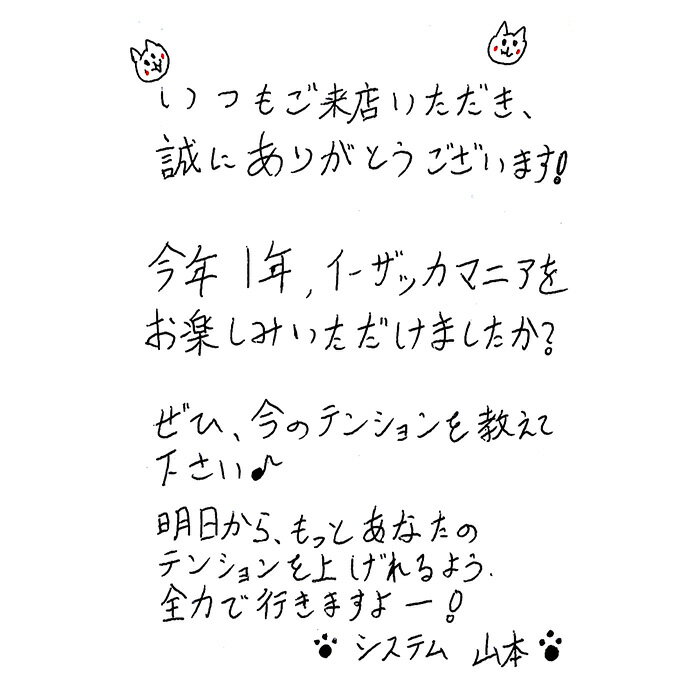 いつもご来店いただき、
誠にありがとうございます!
今年1年,イーザッカマニアを
お楽しみいただけましたか?
ぜひ、今のテンションを教えて
下さい♪
明日から、もっとあなたの
テンションを上げれるよう.
全力で行きますよー!
システム 山本